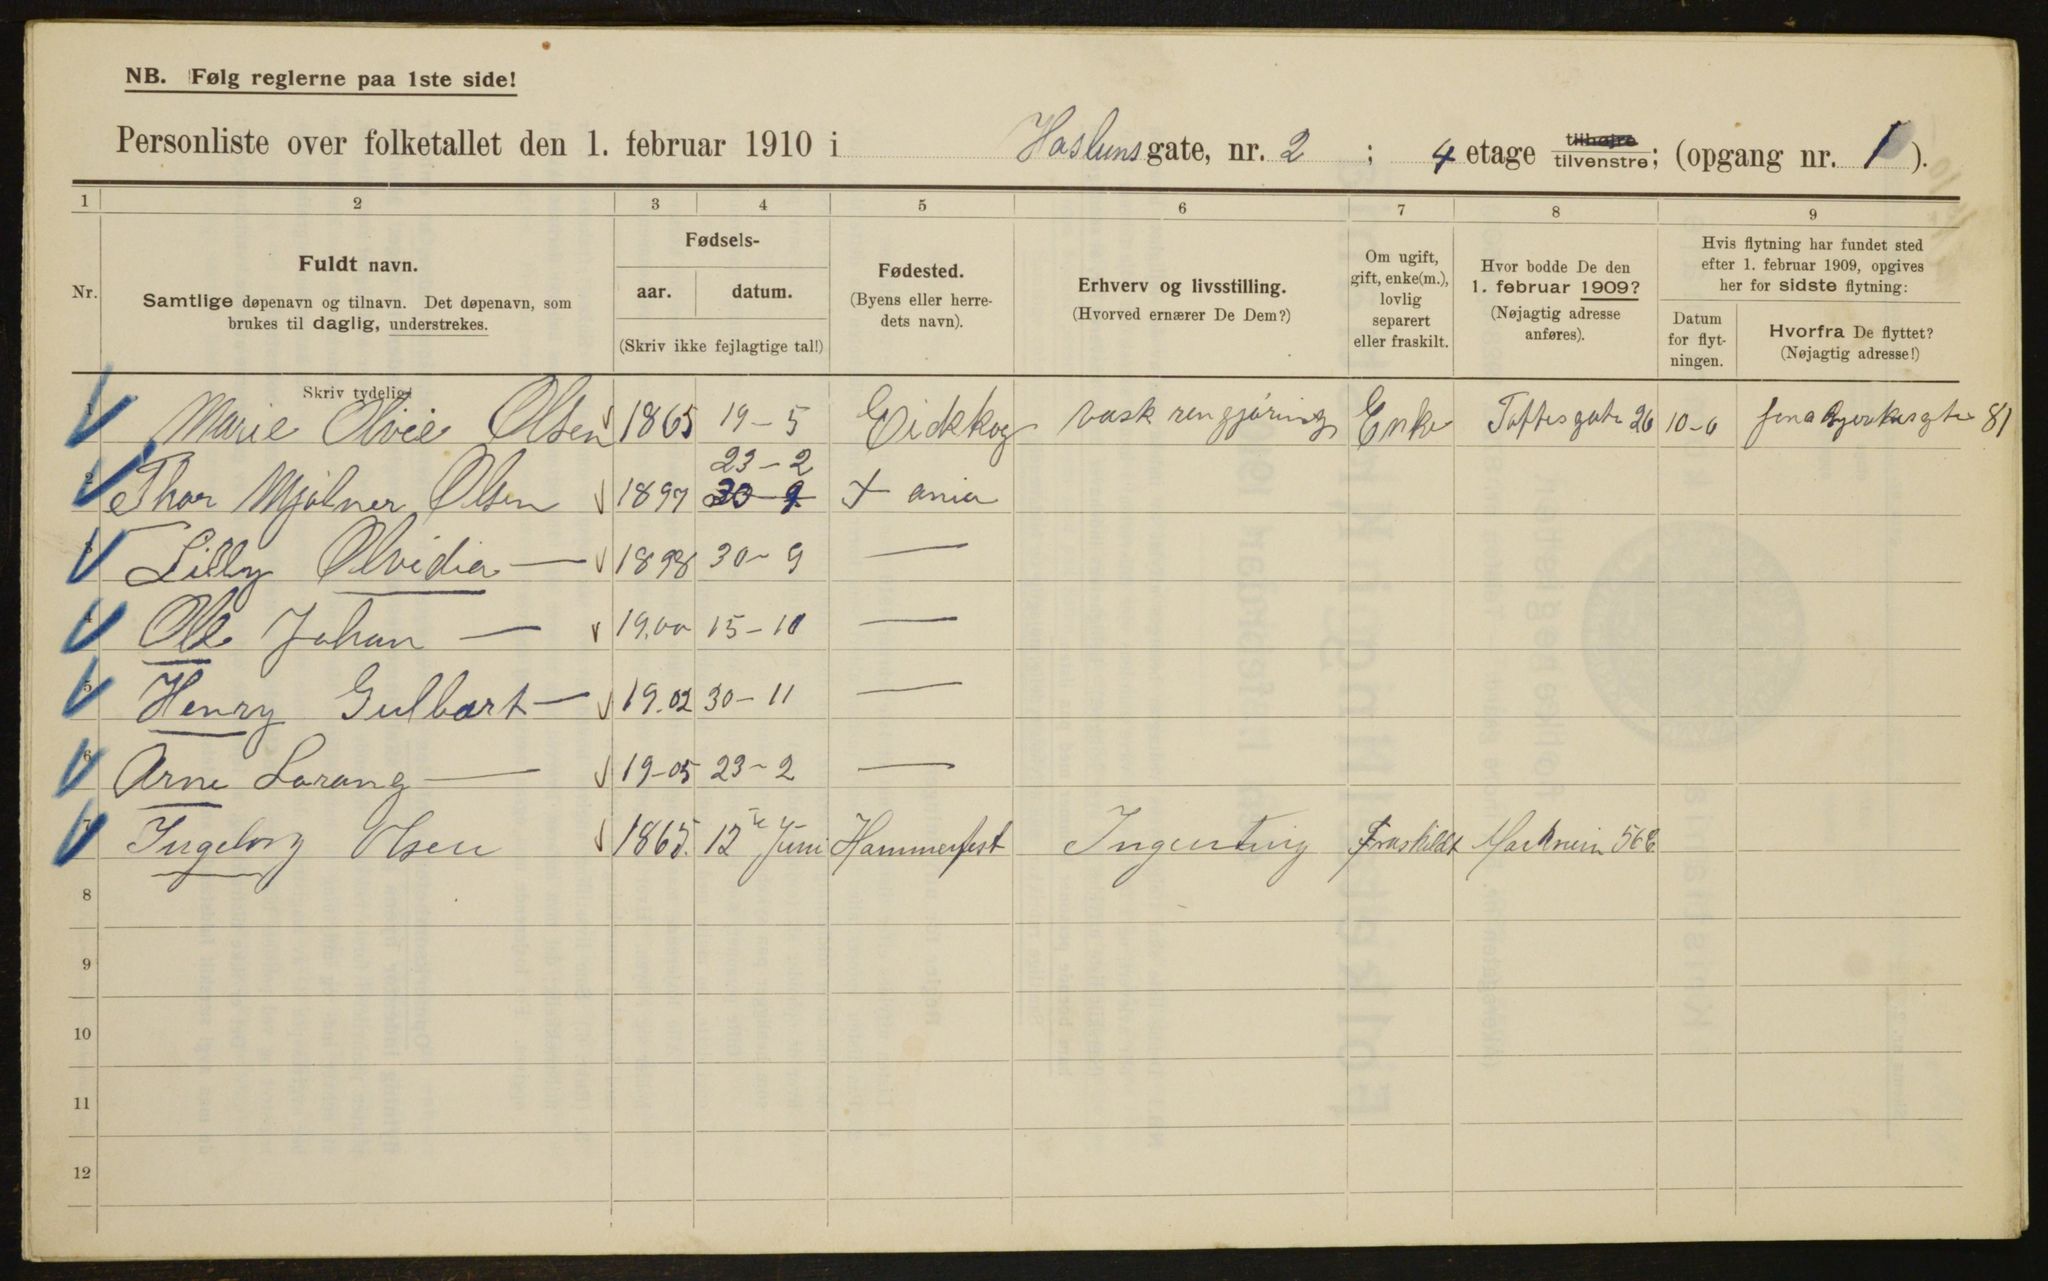 NB. Følg reglerne paa 1ste side!
Personliste over folketallet den 1. februar 1910 i Haslunsgate, nr. 2 ; 4 etage tilhøjre tilvenstre; (opgang nr. 1 ).
1 2 3 4 5 6 7 8 9
Nr.
Fuldt navn.
Samtlige døpenavn og tilnavn. Det døpenavn, som
brukes til daglig, understrekes.
Skriv tydelig!
Fødsels-
aar. datum.
(Skriv ikke fejlagtige tal!)
Fødested.
(Byens eller herre-
dets navn).
Erhverv og livsstilling.
(Hvorved ernærer De Dem?)
Om ugift,
gift, enke(m.),
lovlig
separert
eller fraskilt.
Hvor bodde De den
1. februar 1909?
(Nøjagtig adresse
anføres).
Hvis flytning har fundet sted
efter 1. februar 1909, opgives
her for sidste flytning:
Datum
for flyt-
ningen.
Hvorfra De flyttet?
(Nøjagtig adresse!)
1 Marie Olvie Olsen 1865 19-5 Eidskog vask rengjøring Enke Toftesgate 26 10-6 81
23-2
2 Thor Mjølner Olsen 1897 30 9 X ania
3 Lilly Olvidia — 1898 30-9 —
4 Ole Johan — 19.00 15-10 —
5 Henry Gulbart — 19.02 30-11 —
6 Arne Lorang — 19-05 23-2 —
7 Ingeborg Olsen 1865. 12te Juni Hammerfest Ingenting Fraskildt Markveien 56
8
9
10
11
12